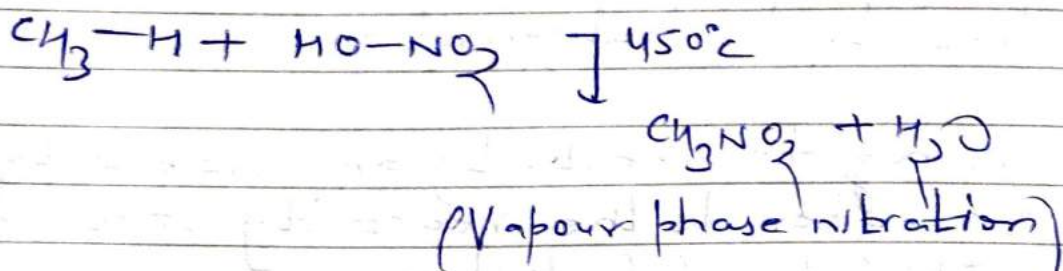 CH₃—H + HO—NO₂ 450°C
CH₃NO₂ + H₂O
(Vapour phase nitration)